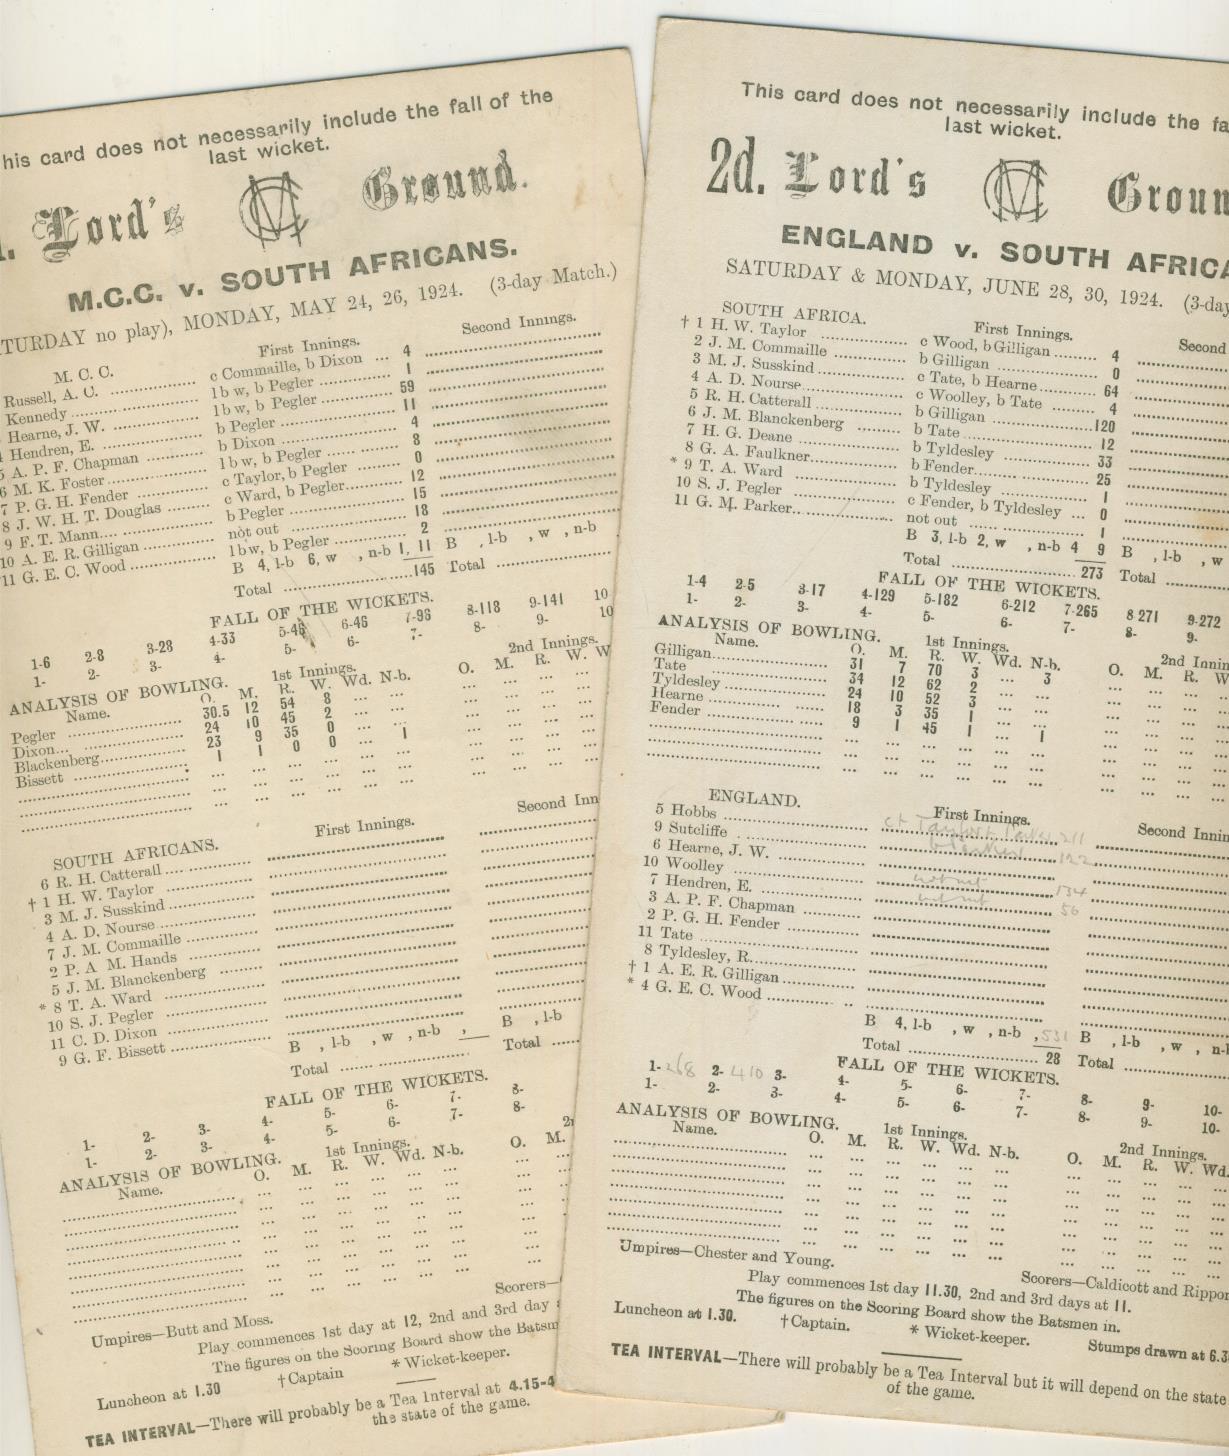 his card does not necessarily include the fall of the
last wicket.
Lord's MCC Ground.
M.C.C. v. SOUTH AFRICANS.
TURDAY no play), MONDAY, MAY 24, 26, 1924. (3-day Match.)
M. C. C. First Innings. Second Innings.
Russell, A. C. c Commaille, b Dixon ... 4
Kennedy lbw, b Pegler 1
Hearne, J. W. lbw, b Pegler 59
Hendren, E. b Pegler 11
5 A. P. F. Chapman b Dixon 4
6 M. K. Foster lbw, b Pegler 8
7 P. G. H. Fender c Taylor, b Pegler 0
8 J. W. H. T. Douglas c Ward, b Pegler 12
9 F. T. Mann b Pegler 15
10 A. E. R. Gilligan not out 18
11 G. E. C. Wood lbw, b Pegler 2
B 4, l-b 6, w , n-b 1, 11 B , l-b , w , n-b
Total 145 Total
FALL OF THE WICKETS.
1-6 2-8 3-28 4-33 5-46 6-46 7-96 8-118 9-141 10
1- 2- 3- 4- 5- 6- 7- 8- 9- 10
ANALYSIS OF BOWLING. 1st Innings. 2nd Innings.
Name. O. M. R. W. Wd. N-b. O. M. R. W. W
Pegler 30.5 12 54 8 ... ...
Dixon... 24 10 45 2 ... ...
Blackenberg 23 9 35 0 ... 1
Bissett 1 1 0 0 ... ...
SOUTH AFRICANS. First Innings. Second Inn
6 R. H. Catterall
† 1 H. W. Taylor
3 M. J. Susskind
4 A. D. Nourse
7 J. M. Commaille
2 P. A M. Hands
5 J. M. Blanckenberg
* 8 T. A. Ward
10 S. J. Pegler
11 C. D. Dixon
9 G. F. Bissett
B , l-b , w , n-b , B , l-b
Total Total
FALL OF THE WICKETS.
1- 2- 3- 4- 5- 6- 7- 8-
1- 2- 3- 4- 5- 6- 7- 8-
ANALYSIS OF BOWLING. 1st Innings. 2
Name. O. M. R. W. Wd. N-b. O. M.
Scorers—
Umpires—Butt and Moss.
Play commences 1st day at 12, 2nd and 3rd day
The figures on the Scoring Board show the Batsm
Luncheon at 1.30 †Captain * Wicket-keeper.
TEA INTERVAL—There will probably be a Tea Interval at 4.15-4
the state of the game.
This card does not necessarily include the fa
last wicket.
2d. Lord's MCC Groun
ENGLAND v. SOUTH AFRICA
SATURDAY & MONDAY, JUNE 28, 30, 1924. (3-day
SOUTH AFRICA. First Innings. Second
† 1 H. W. Taylor c Wood, b Gilligan 4
2 J. M. Commaille b Gilligan 0
3 M. J. Susskind c Tate, b Hearne 64
4 A. D. Nourse c Woolley, b Tate 4
5 R. H. Catterall b Gilligan 120
6 J. M. Blanckenberg b Tate 12
7 H. G. Deane b Tyldesley 33
8 G. A. Faulkner b Fender 25
* 9 T. A. Ward b Tyldesley 1
10 S. J. Pegler c Fender, b Tyldesley ... 0
11 G. M. Parker not out 1
B 3, l-b 2, w , n-b 4 9 B , l-b , w
Total 273 Total
FALL OF THE WICKETS.
1-4 2-5 3-17 4-129 5-182 6-212 7-265 8-271 9-272
1- 2- 3- 4- 5- 6- 7- 8- 9-
ANALYSIS OF BOWLING. 1st Innings. 2nd Innin
Name. O. M. R. W. Wd. N-b. O. M. R. W
Gilligan 31 7 70 3 ... 3
Tate 34 12 62 2 ... ...
Tyldesley 24 10 52 3 ... ...
Hearne 18 3 35 1 ... ...
Fender 9 1 45 1 ... 1
ENGLAND. First Innings. Second Innin
5 Hobbs ct Taylor b Parker 211
9 Sutcliffe 122
6 Hearne, J. W.
10 Woolley not out 134
7 Hendren, E. not out 50
3 A. P. F. Chapman
2 P. G. H. Fender
11 Tate
8 Tyldesley, R.
† 1 A. E. R. Gilligan
* 4 G. E. C. Wood
B 4, l-b , w , n-b , 531 B , l-b , w , n-l
Total 28 Total
FALL OF THE WICKETS.
1-268 2-410 3- 4- 5- 6- 7- 8- 9- 10-
1- 2- 3- 4- 5- 6- 7- 8- 9- 10-
ANALYSIS OF BOWLING. 1st Innings. 2nd Innings.
Name. O. M. R. W. Wd. N-b. O. M. R. W. Wd.
Umpires—Chester and Young. Scorers—Caldicott and Rippon
Play commences 1st day 11.30, 2nd and 3rd days at 11.
The figures on the Scoring Board show the Batsmen in.
Luncheon at 1.30. †Captain. * Wicket-keeper. Stumps drawn at 6.3
TEA INTERVAL—There will probably be a Tea Interval but it will depend on the state
of the game.